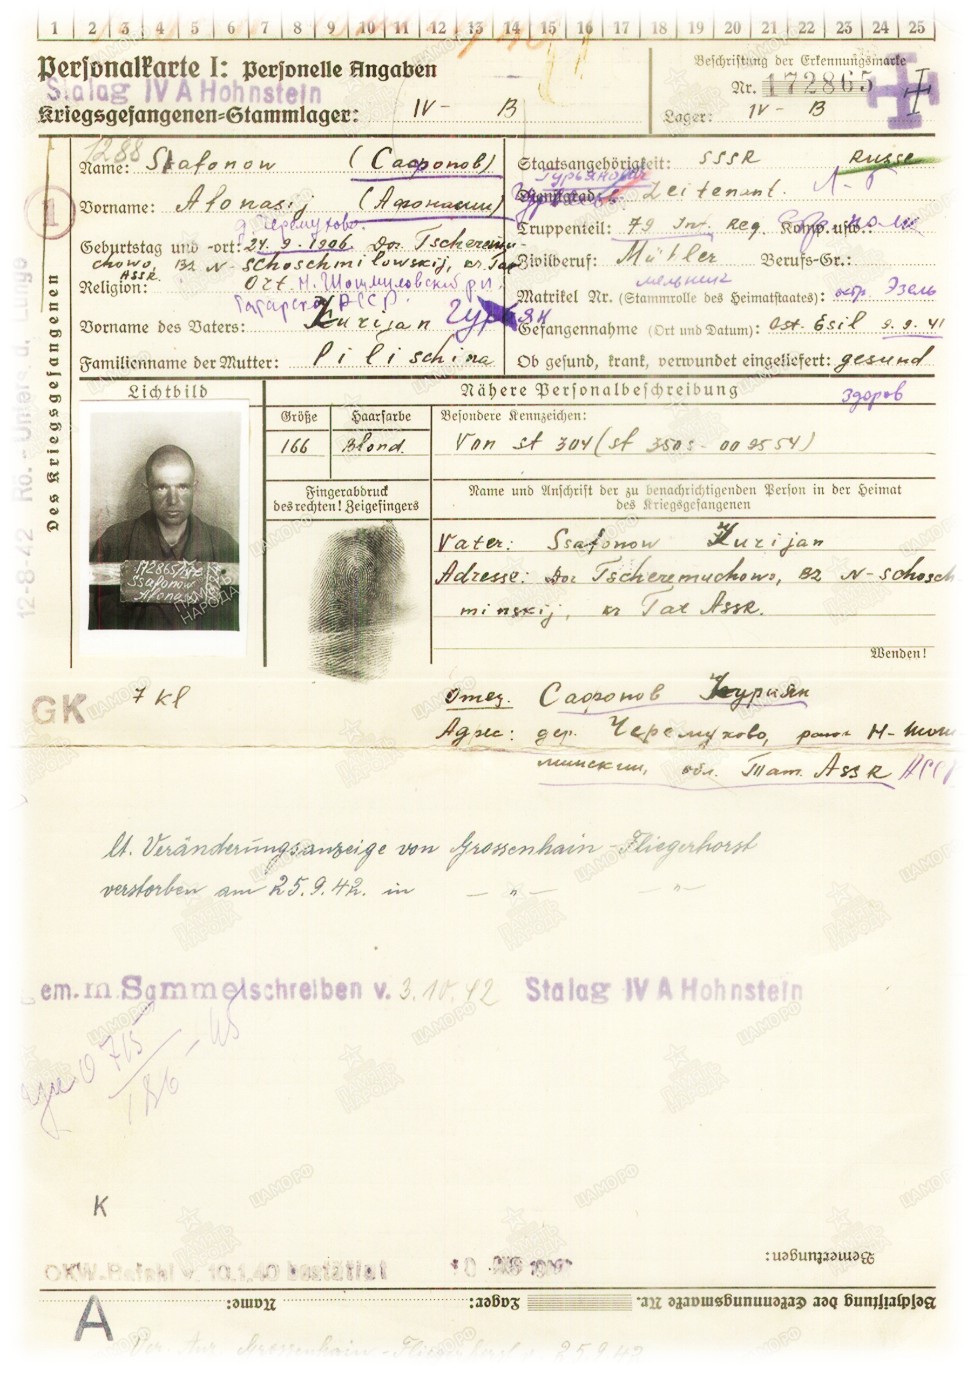 1 2 3 4 5 6 7 8 9 10 11 12 13 14 15 16 17 18 19 20 21 22 23 24 25
Personalkarte I: Personelle Angaben
Stalag IV A Hohnstein
Kriegsgefangenen-Stammlager: IV - B
Beschriftung der Erkennungsmarke
Nr. 172865
Lager: IV - B
Des Kriegsgefangenen
12-8-42 Rö.-Unters. d. Lunge
1288
1
Name: Ssafonow (Сафонов)
Vorname: Afonasij (Афонасий)
д. Черемухово.
Geburtstag und -ort: 24.9.1906. Dor Tscheremu-
chowo, Bz N-Schoschmilowskij, kr. Tat
ASSR
Religion: Ort. Н. Шошмуловский р-н.
Татарской АССР.
Vorname des Vaters: Kurijan Гурьян
Familienname der Mutter: Pilischina
Staatsangehörigkeit: SSSR Russe
Гурьянович
Dienstgrad: Leitenant. Л-т
Truppenteil: 79 Inf. Reg. Komp. usw.:
Zivilberuf: Mühler Berufs-Gr.:
мельник
Matrikel Nr. (Stammrolle des Heimatstaates): остр. Эзель
Gefangennahme (Ort und Datum): Ost. Esil 9.9.41
Ob gesund, krank, verwundet eingeliefert: gesund
здоров
Lichtbild
Nähere Personalbeschreibung
Größe Haarfarbe Besondere Kennzeichen:
166 Blond. Von st 304 (st 350s - 00 9554)
Fingerabdruck
des rechten! Zeigefingers
Name und Anschrift der zu benachrichtigenden Person in der Heimat
des Kriegsgefangenen
Vater: Ssafonow Kurijan
Adresse: Dor Tscheremuchowo, Bz N-Schosch
minskij, kr Tat ASSR.
172865 IVB
Ssafonow
Afonasij
Wenden!
GK 7 Kl
Отец. Сафонов Курийян
Адрес: дер. Черемухово, район Н-шош
минский, обл. Тат. ASSR АССР
lt. Veränderungsanzeige von Grossenhain - Fliegerhorst
verstorben am 25.9.42. in — " — — " —
em. m. Sammelschreiben v. 3.10.42 Stalag IV A Hohnstein
715
186
- 45
K
Bemerkungen:
Beschriftung der Erkennungsmarke Nr. Lager: Name:
A
Grossenhain - Fliegerhorst 25.9.42